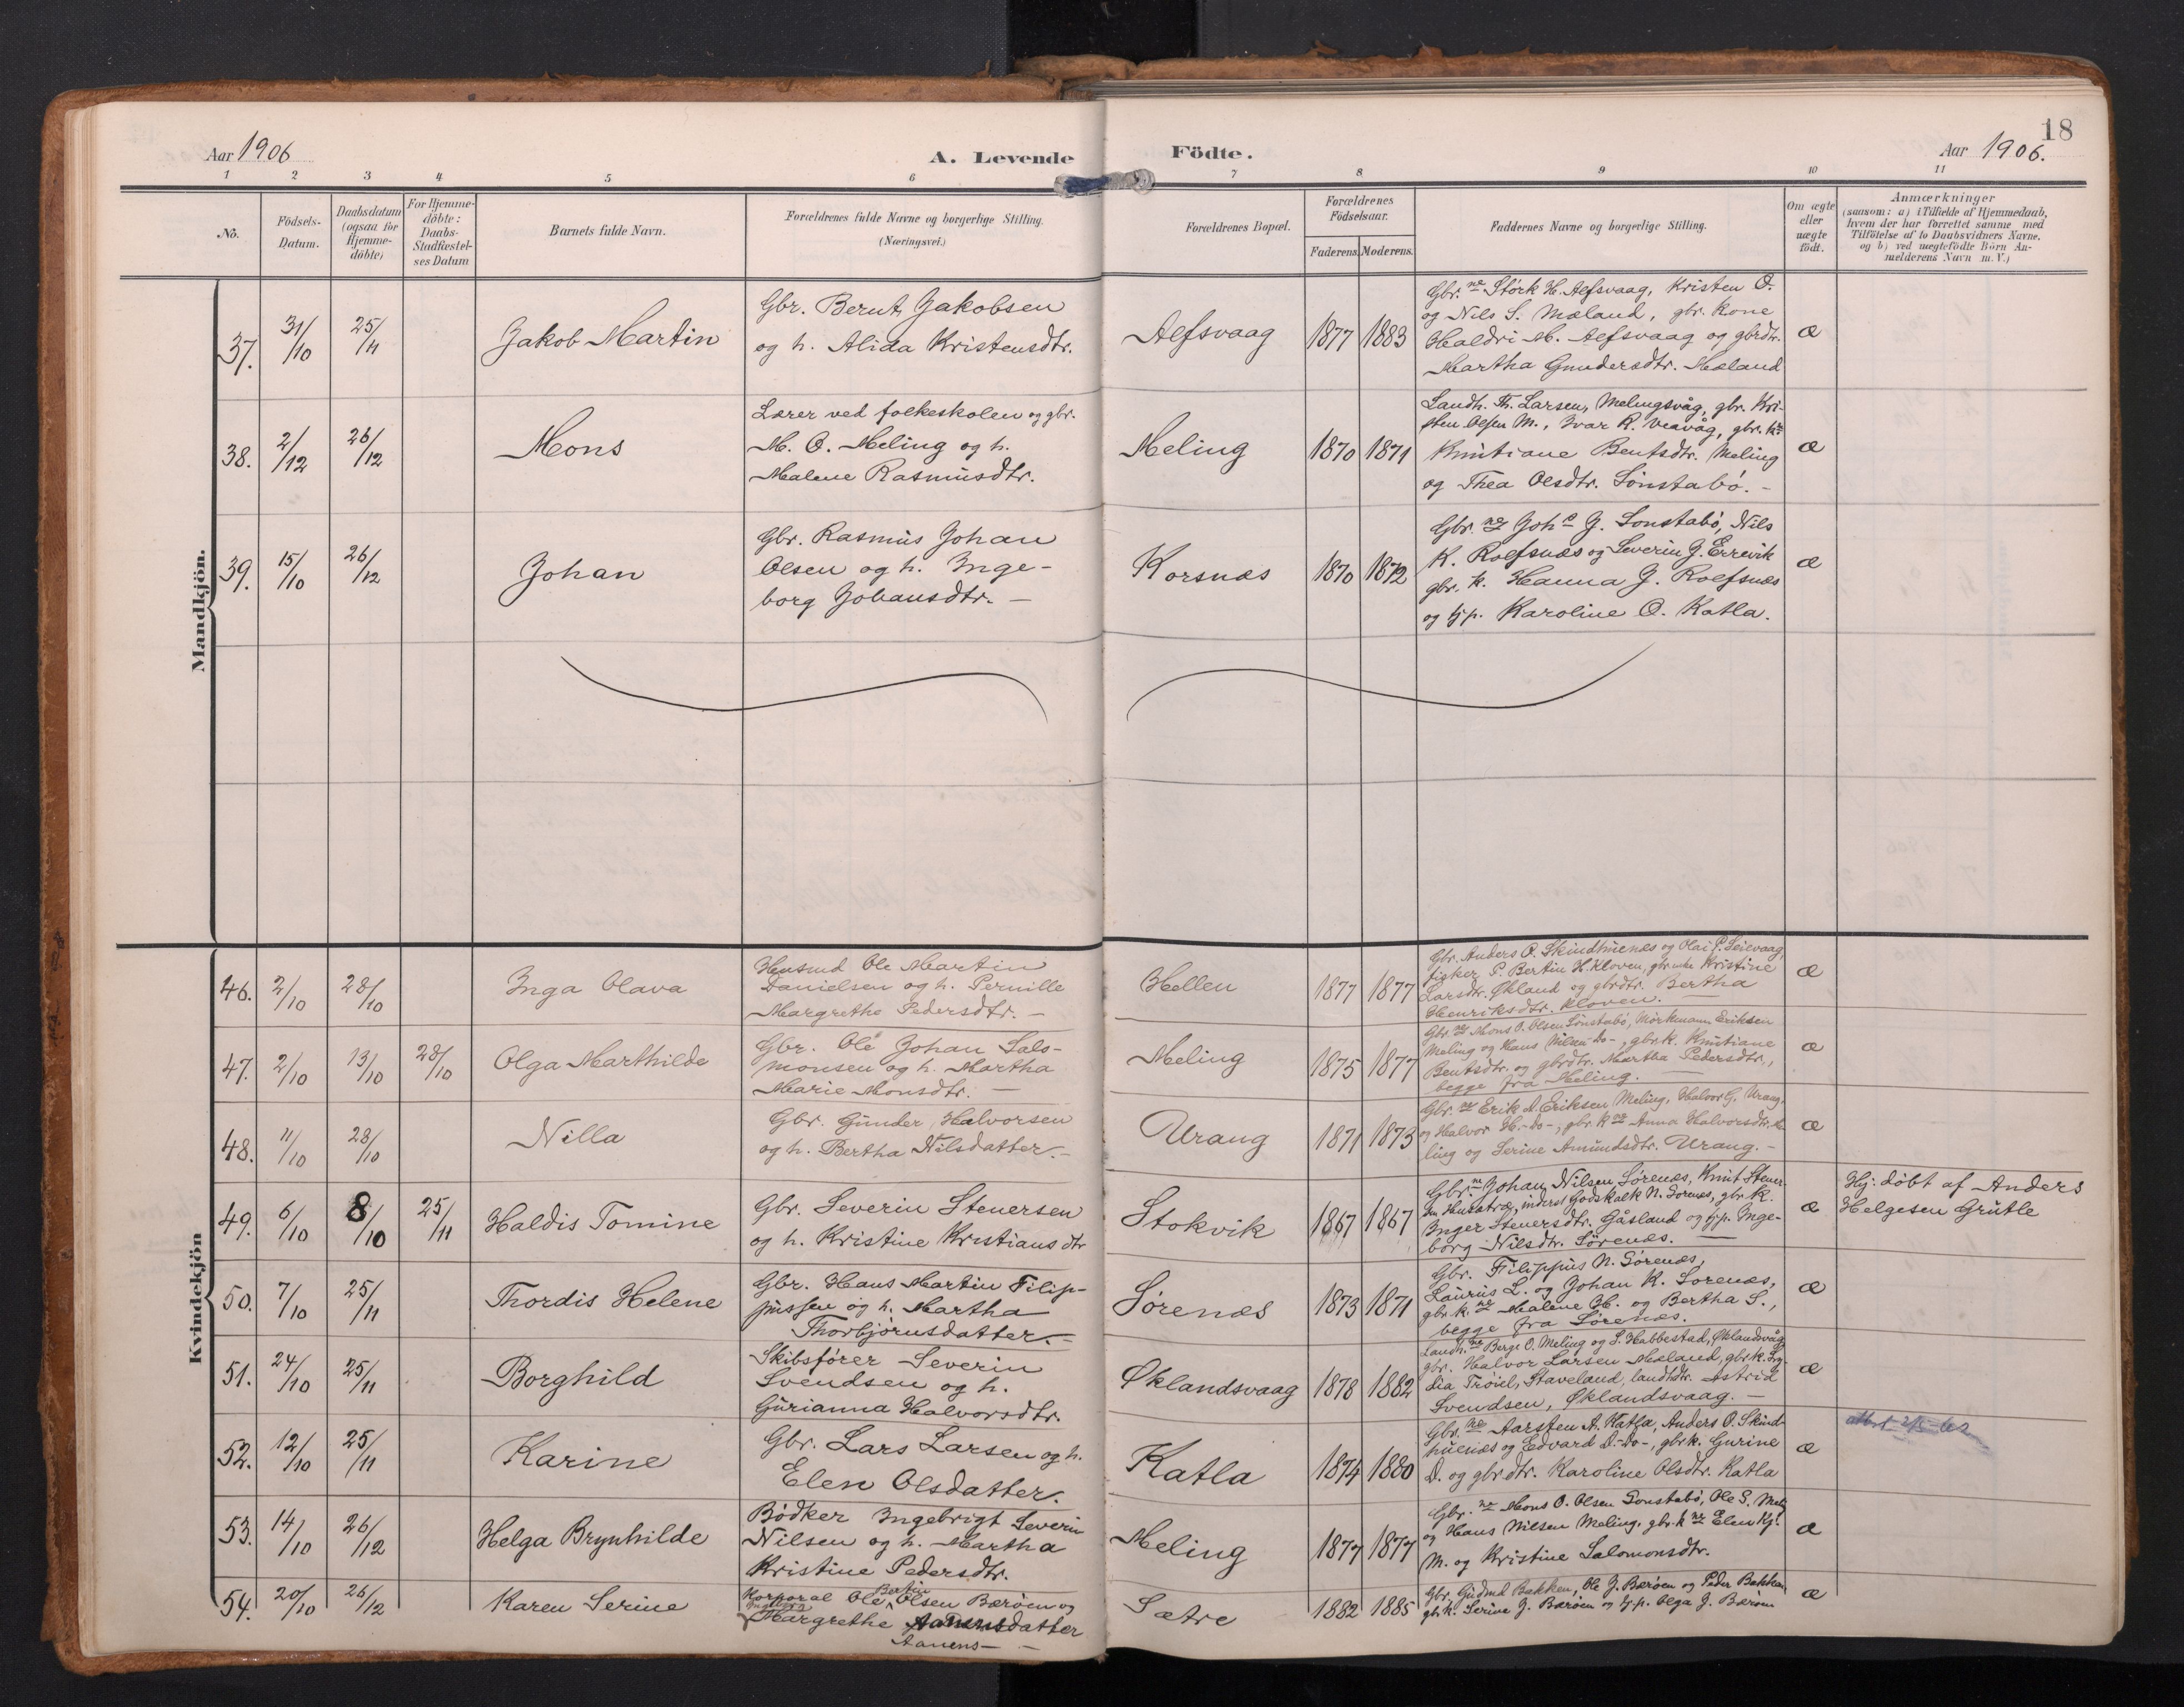 Aar 1906
A. Levende
Födte.
Aar 1906.
18
1 2 3 4 5 6 7 8 9 10 11
No.
Födsels-
Datum.
Daabsdatum
(ogsaa for
Hjemme-
döbte)
For Hjemme-
döbte:
Daabs-
Stadfæstel-
ses Datum
Barnets fulde Navn.
Forældrenes fulde Navne og borgerlige Stilling.
(Næringsvei.)
Forældrenes Bopæl.
Forældrenes
Födselsaar.
Faderens. Moderens.
Faddernes Navne og borgerlige Stilling.
Om ægte
eller
uægte
født.
Anmærkninger
(saasom: a) i Tilfælde af Hjemmedaab,
hvem der har forrettet samme med
Tilföielse af to Daabsvidners Navne,
og b) ved uægtefödte Börn An-
melderens Navn m. V.)
Mandkjön.
37. 31/10 25/11
Jakob Martin
Gbr. Bernt Jakobsen
og h. Alida Kristensdtr.
Aefsvaag
1877 1883
Gbr.ne Størk H. Aefsvaag, Kristen O.
og Nils S. Mæland, gbr. kone
Haldri M. Aefsvaag og gbrdtr.
Martha Gundersdtr. Mæland
æ
38. 2/12 26/12
Mons
Lærer ved folkeskolen og gbr.
M. O. Meling og h.
Malene Rasmusdtr.
Meling
1870 1871
Landh. Th. Larsen, Melingsvåg, gbr. Kri-
sten Olsen M., Ivar R. Veavåg, gbr. k.ne
Knutiane Bentsdtr. Meling
og Thea Olsdtr. Sønstabø. -
æ
39. 15/10 26/12
Johan
Gbr. Rasmus Johan
Olsen og h. Inge-
borg Johansdtr. —
Korsnæs
1870 1872
Gbr. ne Joh. G. Sønstabø, Nils
K. Roefsnæs og Severin J. Errevik
gbr. k. Hanna J. Roefsnæs
og tj.p. Karoline O. Katla.
æ
Kvindekjön
46. 2/10 28/10
Inga Olava
Husmd Ole Martin
Danielsen og h. Pernille
Margrethe Pedersdtr. —
Hellen
1877 1877
Gbr. Anders O. Skindhuenæs og Olai P. Leievaag,
fisker P. Bertin H. Kloven, gbr. enke Kristine
Larsdtr. Økland og gbrdtr. Bertha
Henriksdtr. Kloven. —
æ
47. 2/10 13/10 28/10
Olga Marthilde
Gbr. Ole Johan Salo-
monsen og h. Martha
Marie Monsdtr. —
Meling
1875 1877
Gbr. ne Mons O. Olsen Sønstabø, Mørkmann Eriksen
Meling og Hans Nilsen -do-, gbr. k. Knutiane
Bentsdtr. og gbrdtr. Martha Pedersdtr.,
begge fra Meling. —
æ
48. 11/10 28/10
Nilla
Gbr. Gunder Halvorsen
og h. Bertha Nilsdatter. -
Urang
1871 1873
Gbr. ne Erik A. Eriksen Meling, Halvor G. Urang,
og Halvor H. -do-, gbr. k ne Anna Halvorsdtr. Me
ling og Serine Amundsdtr. Urang. -
æ
49. 6/10 8/10 25/11
Haldis Tomine
Gbr. Severin Stenersen
og h. Kristine Kristiansdtr
Stokvik
1867 1867
Gbr. ne Johan Nilsen Sørenæs, Knut Stener-
sen, inderst Godskalk N. Sørenæs, gbr. k.
Inger Stenersdtr. Gåsland og tj.p. Inge-
borg Nilsdtr. Sørenæs. —
æ
Hj. døbt af Anders
Helgesen Grutle
50. 7/10 25/11
Thordis Helene
Gbr. Hans Martin Filip-
pussen og h. Martha
Thorbjørnsdatter. -
Sørenæs
1873 1871
Gbr. Filippus N. Sørenæs,
Laurus L. og Johan K. Sørenæs,
gbr. k. ne Malene H. og Bertha S.,
begge fra Sørenæs.
æ
51. 24/10 25/11
Borghild
Skibsfører Severin
Svendsen og h.
Gurianna Halvorsdtr.
Øklandsvaag
1878 1882
Landh. ne Berge O. Meling og S. Habbestad, Øklandsvåg,
gbr. Halvor Larsen Mæland, gbr. k. Ly-
dia Trøiel, Staveland, landhdtr. Astrid
Svendsen, Øklandsvaag. —
æ
52. 12/10 25/11
Karine
Gbr. Lars Larsen og h.
Elen Olsdatter.
Katla
1874 1880
Gbr. ne Aarsten A. Katla, Anders O. Skind-
huenæs og Edvard D. -do-, gbr. k. Gurine
D. og gbr. dtr. Karoline Olsdtr. Katla
æ
53. 14/10 26/12
Helga Brynhilde
Bødker Ingebrigt Severin
Nilsen og h. Martha
Kristine Pedersdtr.
Meling
1877 1877
Gbr. ne Mons O. Olsen Sønstabø, Ole S. Mel.
og Hans Nilsen Meling, gbr. k ne Elen Kj.
M. og Kristine Salomonsdtr.
æ
54. 20/10 26/12
Karen Serine
Korporal Ole Bertin Olsen Bærøen og
Ingeborg
Margrethe datter
Aanens —
Sætre
1882 1885
Gbr. Gudmd Bakken, Ole J. Bærøen og Peder Bakken,
gbr. k. Serine J. Bærøen og tj.p. Olga J. Bærøen
æ